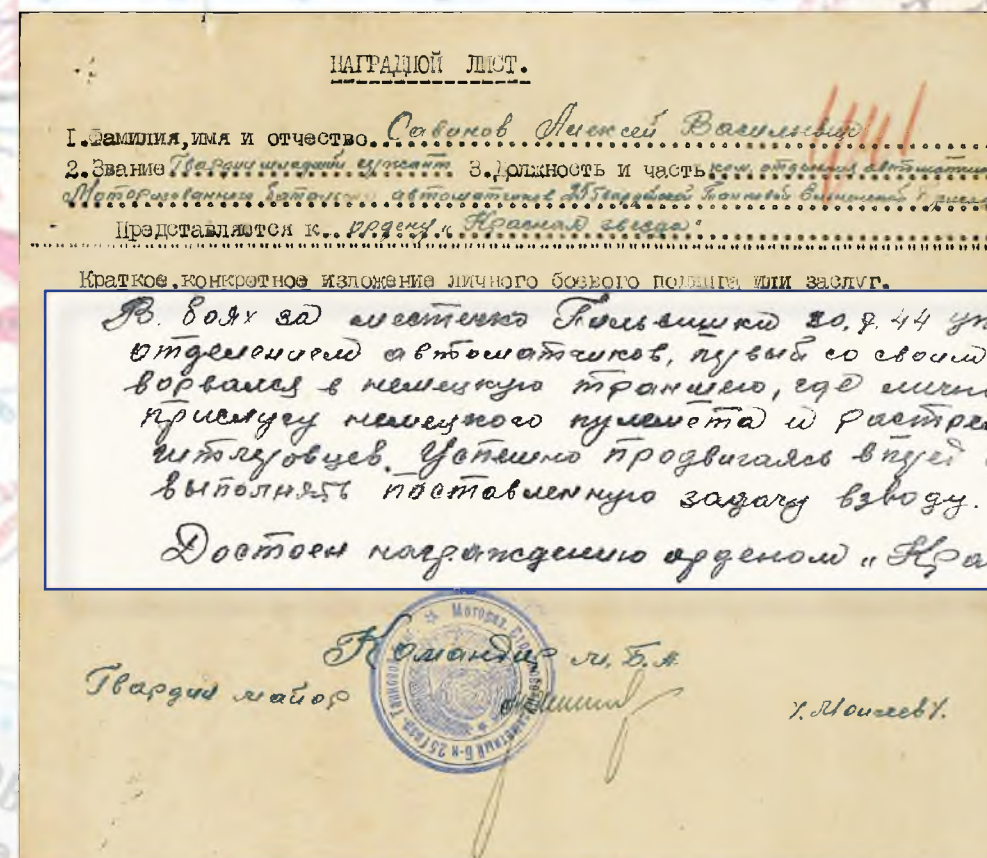 НАГРАДНОЙ ЛИСТ.
1. Фамилия, имя и отчество. Саванов Алексей Васильевич
2. Звание Гвардии младший сержант 3. Должность и часть ком. отделения
Моторизованного батальона автоматчиков 25 Гвардейской Танковой
Представляются к ордену "Красная звезда"
Краткое, конкретное изложение личного боевого подвига или заслуг.
В боях за местечко 44
отделением автоматчиков, первый со своим
ворвался в немецкую траншею, где лично
прислугу немецкого пулемета и
гитлеровцев. Успешно продвигаясь вперед
выполнять поставленную задачу взводу.
Достоен награждению орденом "
Командир м. Б. А.
Гвардии майор /. Моисеев /.